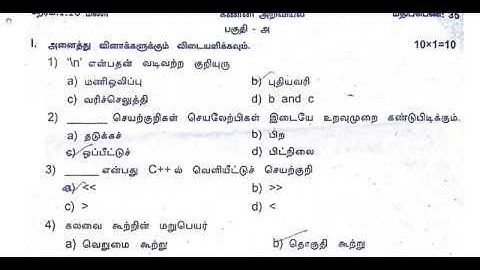 கணினி அறிவியல்
பகுதி - அ
I. அனைத்து வினாக்களுக்கும் விடையளிக்கவும். 10×1=10
1) '\n' என்பதன் வடிவற்ற குறியுரு
a) மணிஒலிப்பு b) புதியவரி
c) வரிச்செலுத்தி d) b and c
2) ______ செயற்குறிகள் செயலேற்பிகள் இடையே உறவுமுறை கண்டுபிடிக்கும்.
a) தடுக்கச் b) பிற
c) ஒப்பீட்டுச் d) பிட்நிலை
3) ______ என்பது C++ ல் வெளியீட்டுச் செயற்குறி
a) << b) >>
c) > d) <
4) கலவை கூற்றின் மறுபெயர்
a) வெறுமை கூற்று b) தொகுதி கூற்று